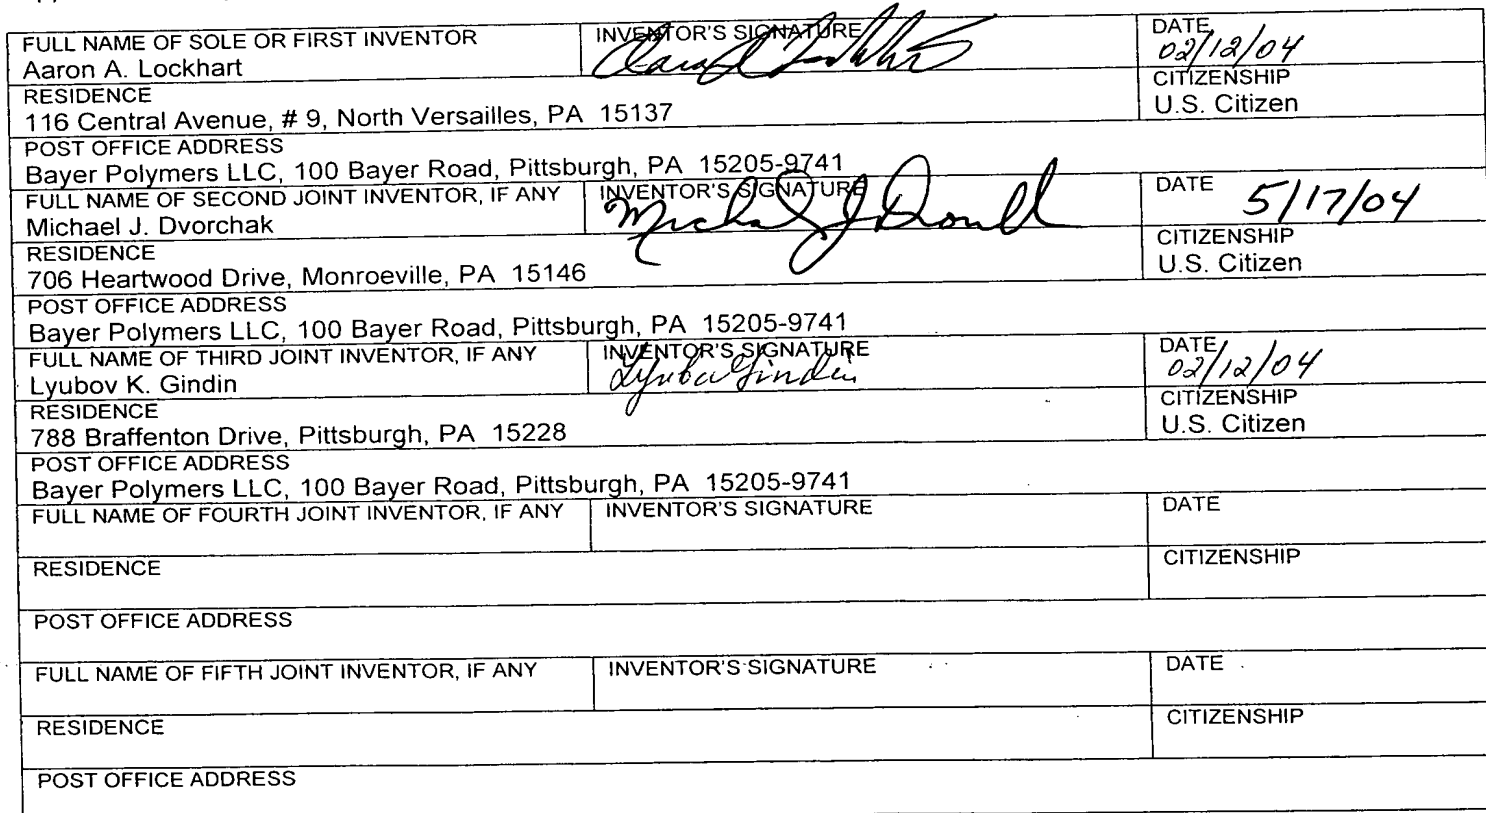 FULL NAME OF SOLE OR FIRST INVENTOR INVENTOR'S SIGNATURE DATE
Aaron A. Lockhart 02/12/04
RESIDENCE CITIZENSHIP
116 Central Avenue, # 9, North Versailles, PA 15137 U.S. Citizen
POST OFFICE ADDRESS
Bayer Polymers LLC, 100 Bayer Road, Pittsburgh, PA 15205-9741
FULL NAME OF SECOND JOINT INVENTOR, IF ANY INVENTOR'S SIGNATURE DATE 5/17/04
Michael J. Dvorchak
RESIDENCE CITIZENSHIP
706 Heartwood Drive, Monroeville, PA 15146 U.S. Citizen
POST OFFICE ADDRESS
Bayer Polymers LLC, 100 Bayer Road, Pittsburgh, PA 15205-9741
FULL NAME OF THIRD JOINT INVENTOR, IF ANY INVENTOR'S SIGNATURE DATE
Lyubov K. Gindin Lyubov Gindin 02/12/04
RESIDENCE CITIZENSHIP
788 Braffenton Drive, Pittsburgh, PA 15228 U.S. Citizen
POST OFFICE ADDRESS
Bayer Polymers LLC, 100 Bayer Road, Pittsburgh, PA 15205-9741
FULL NAME OF FOURTH JOINT INVENTOR, IF ANY INVENTOR'S SIGNATURE DATE
RESIDENCE CITIZENSHIP
POST OFFICE ADDRESS
FULL NAME OF FIFTH JOINT INVENTOR, IF ANY INVENTOR'S SIGNATURE DATE
RESIDENCE CITIZENSHIP
POST OFFICE ADDRESS